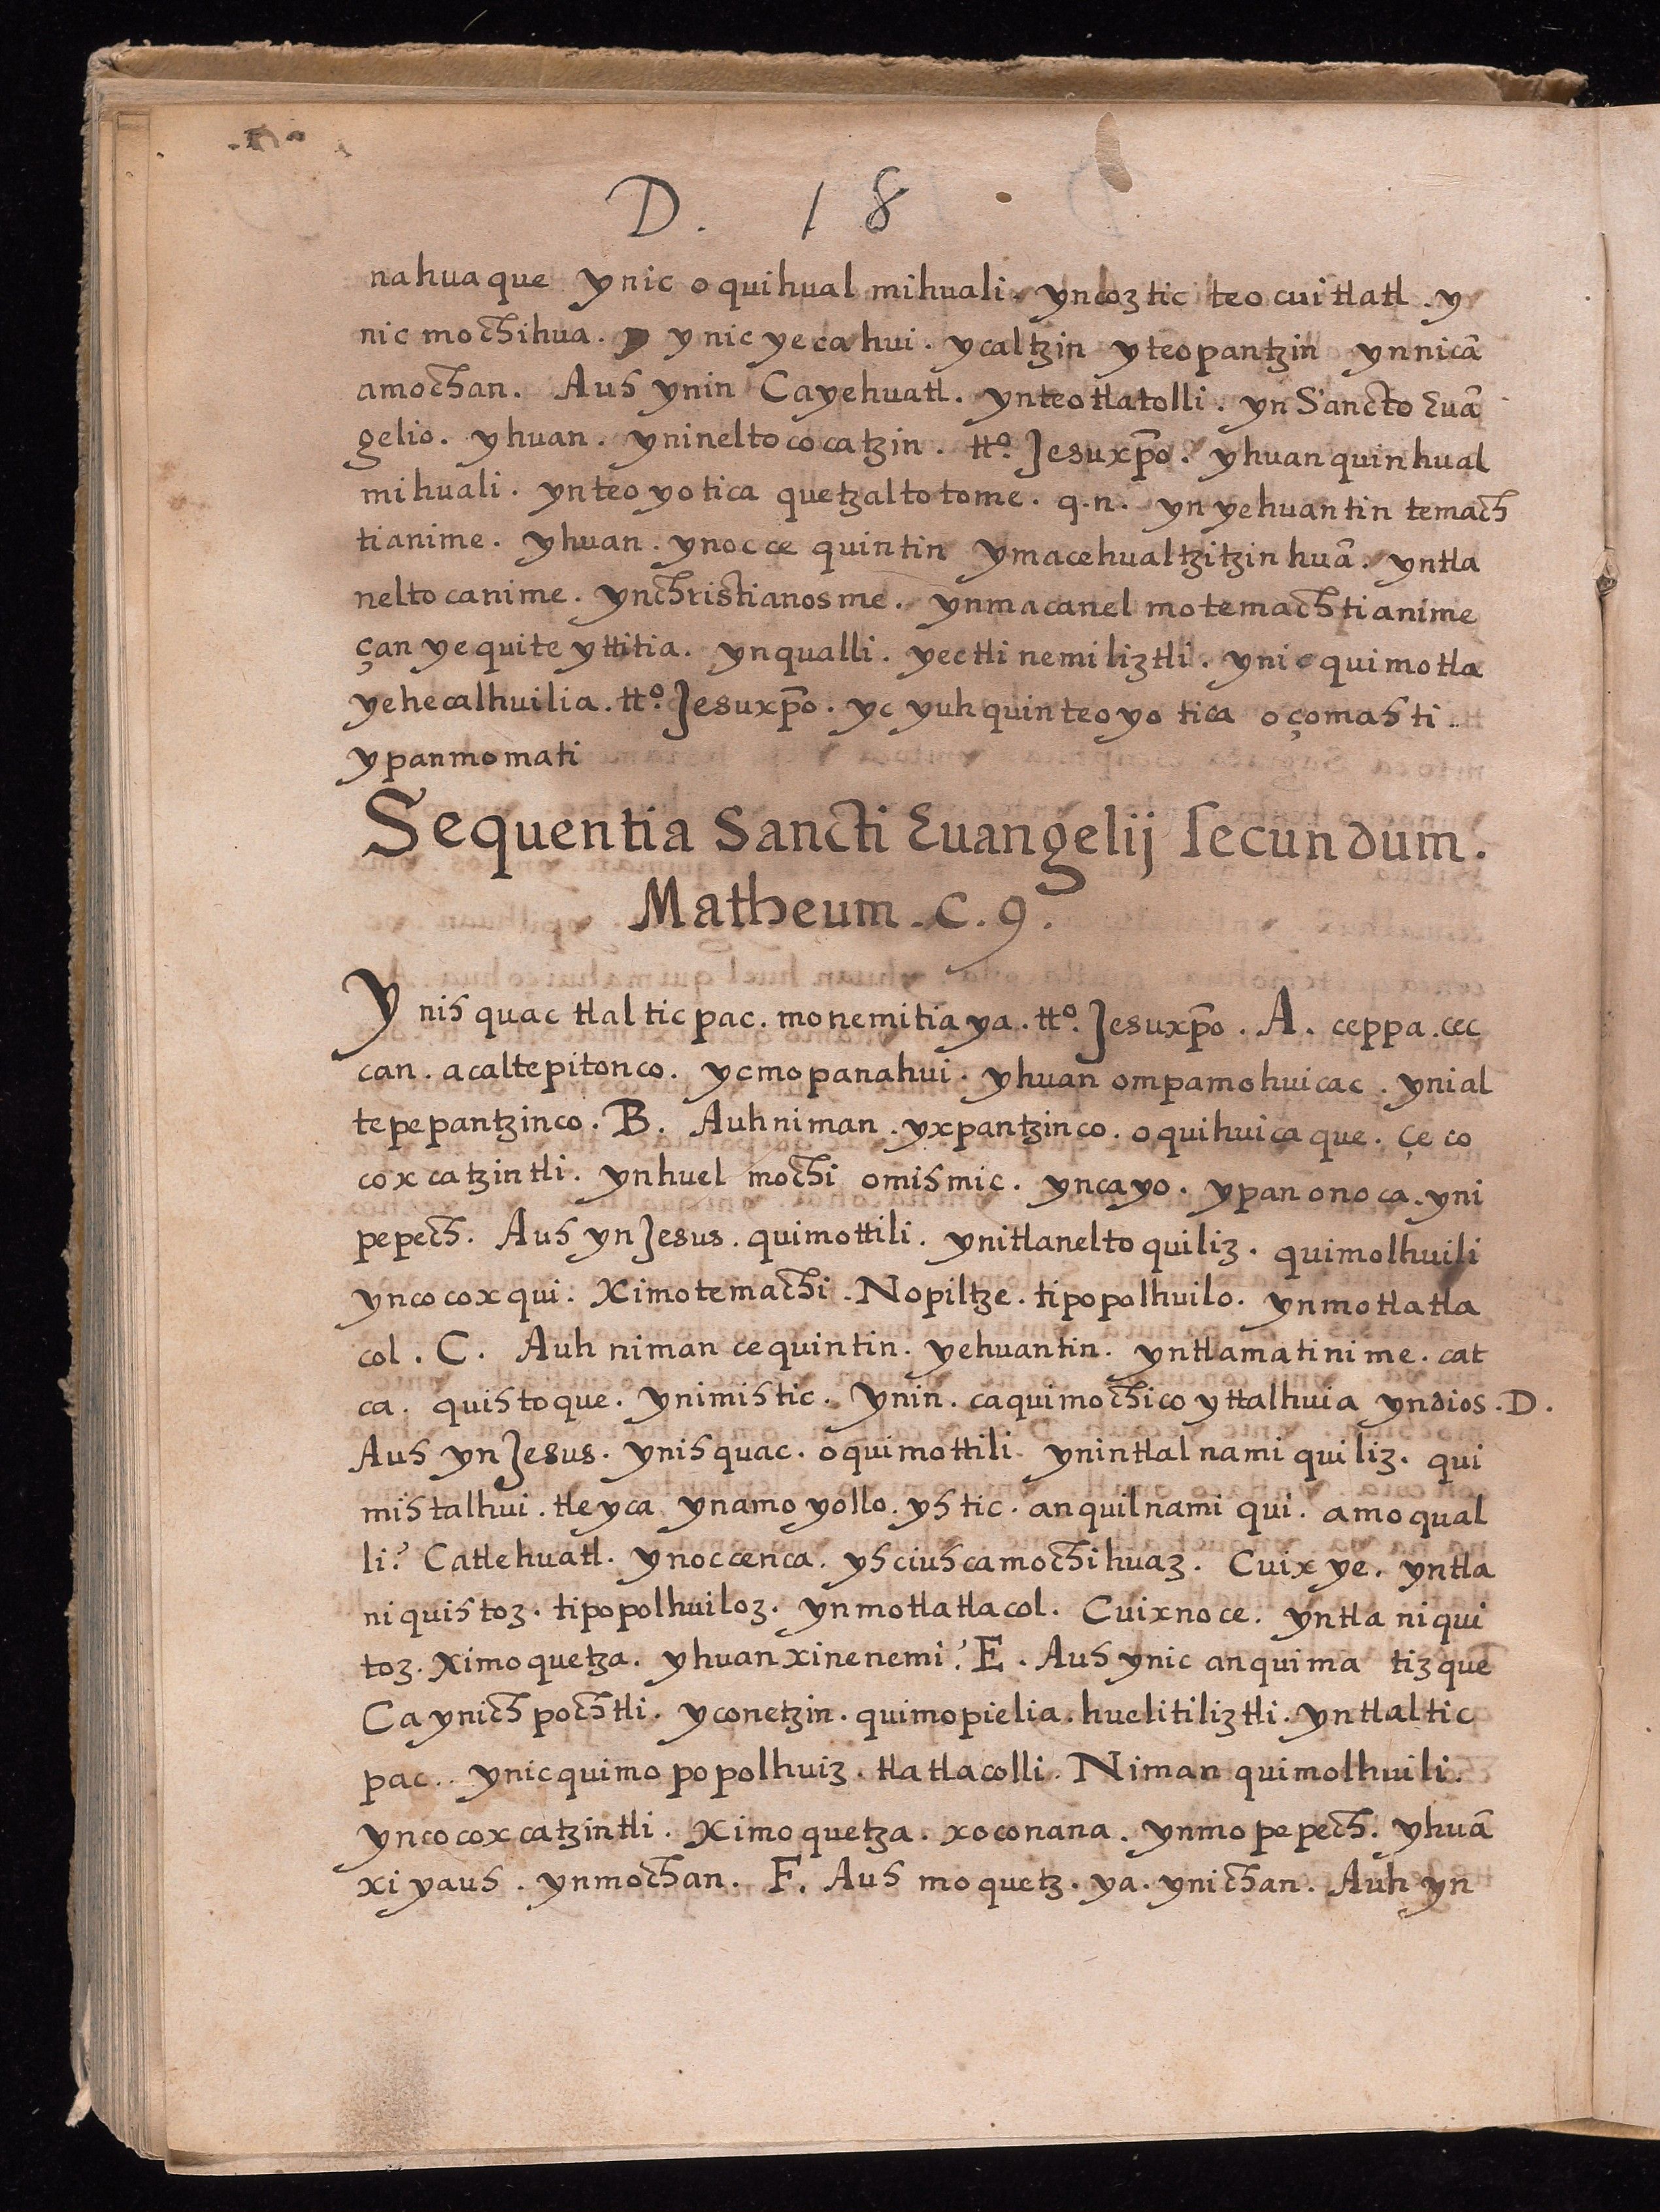 D. 18
nahuaque ynic oquihual mihuali. yncoztic teocuitlatl. y
nic mochihua. y ynic yecahui. ycaltzin yteopantzin ynnicā
amochan. Auh ynin Cayehuatl. ynteotlatolli. yn Sancto Euā
gelio. yhuan. ynineltococatzin. tto. Jesuxp̄o. yhuan quinhual
mihuali. ynteoyotica quetzaltotome. q.n. yn yehuantin temach
tianime. yhuan. ynocce quintin ymacehualtzitzinhuā. yntla
neltocanime. ynchristianosme. ynmacanel motemachtianime
çan ye quiteyttitia. ynqualli. yectli nemiliztli. ynic quimotla
yehecalhuilia. tto. Jesuxp̄o. yc yuhquin teoyotica oçomahti..
ypanmomati
Sequentia Sancti Euangelij secundum.
Matheum. C. 9.
Y nihquac tlalticpac. monemitiaya. tto. Jesuxp̄o. A. ceppa. cec
can. acaltepitonco. ycmopanahui. yhuan ompamohuicac. ynial
tepepantzinco. B. Auhniman. yxpantzinco. oquihuicaque. çe co
coxcatzintli. ynhuel mochi omihmic. yncayo. ypan onoca. yni
pepech. Auh yn Jesus. quimottili. ynitlaneltoquiliz. quimolhuili
yncocoxqui. Ximotemachi. Nopiltze. tipopolhuilo. ynmotlatla
col. C. Auh niman cequintin. yehuantin. yntlamatinime. cat
ca. quihtoque. ynimihtic. ynin. caquimochicoyttalhuia yndios. D.
Auh yn Jesus. ynihquac. oquimottili ynintlalnamiquiliz. qui
mihtalhui. tleyca ynamoyollo. yhtic. anquilnamiqui. amoqual
li? Catlehuatl. ynoccenca. yhciuhcamochihuaz. Cuix ye. yntla
niquihtoz. tipopolhuiloz. ynmotlatlacol. Cuixnoce. yntla niqui
toz. Ximoquetza. yhuan xinenemi? E. Auh ynic anquima tizquē
Ca ynichpochtli. yconetzin. quimopielia. huelitiliztli. yntlaltic
pac.. ynicquimo popolhuiz. tlatlacolli. Niman quimolhuili.
yncocoxcatzintli. Ximoquetza. xoconana. ynmopepech. yhuā
xiyauh. ynmochan. F. Auh moquetz. ya. ynichan. Auh yn